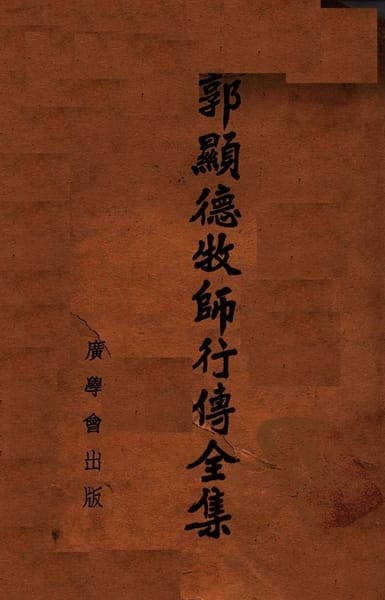 郭顯德牧師行傳全集
廣學會出版